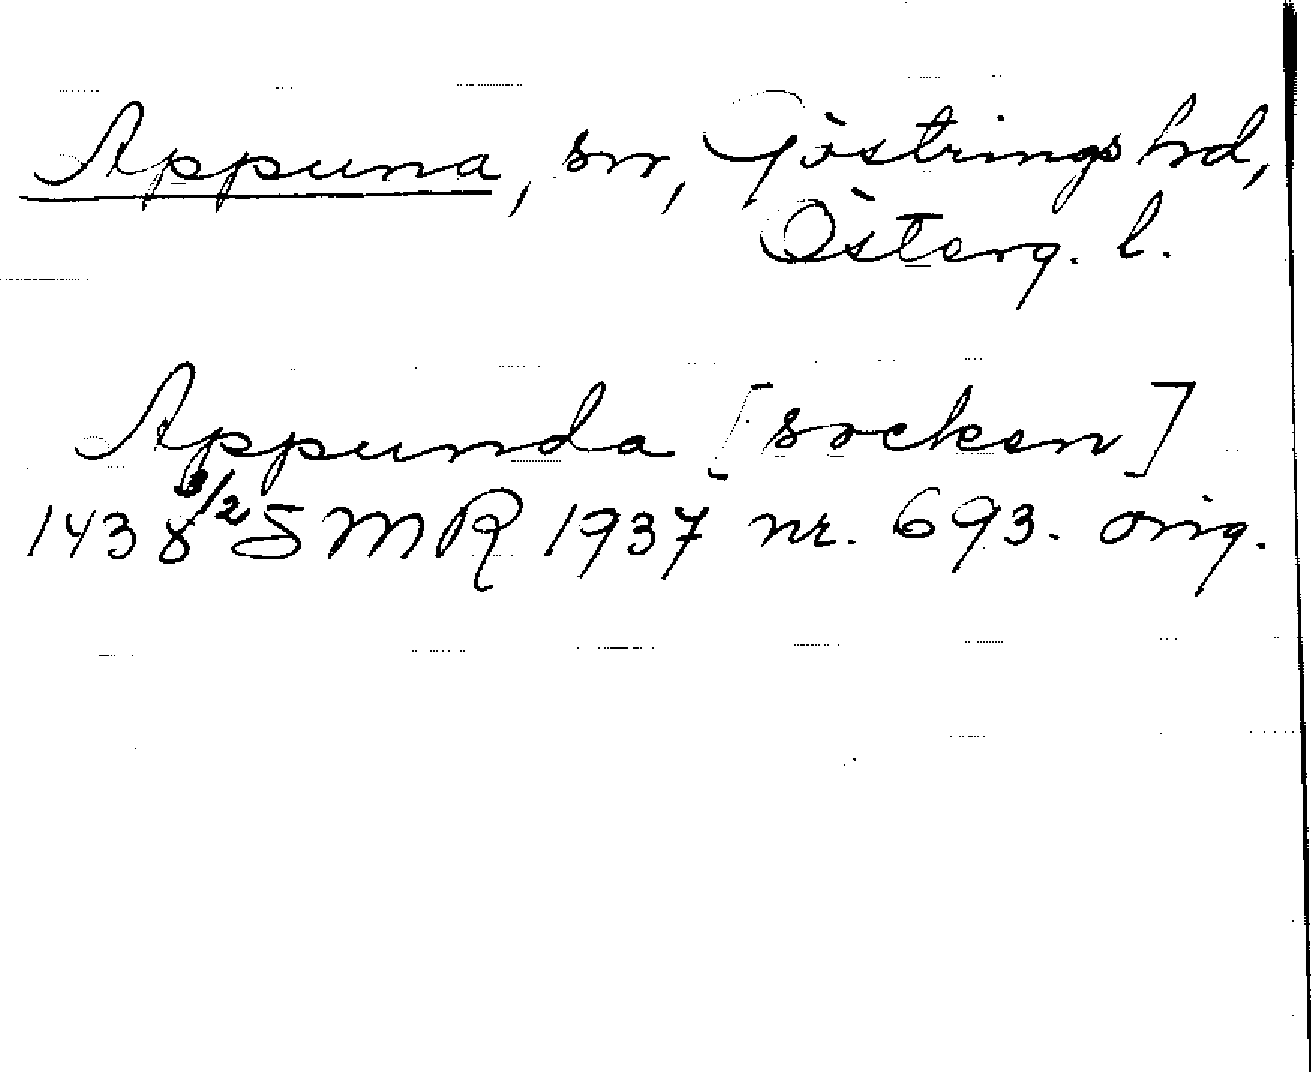 Appuna, sn, Göstrings hd,
Österg. l.
Appunda [socken]
1438 3/2 SMR 1937 nr. 693. orig.